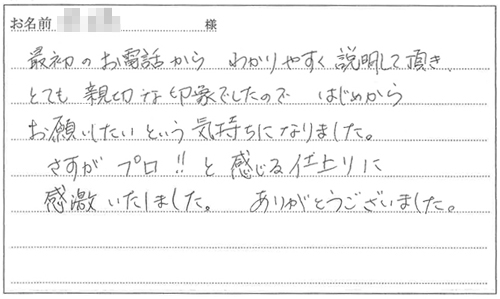 お名前 様
最初のお電話から わかりやすく説明して頂き、
とても親切な印象でしたので はじめから
お願いしたいという気持ちになりました。
さすが プロ!! と感じる仕上りに
感激いたしました。 ありがとうございました。